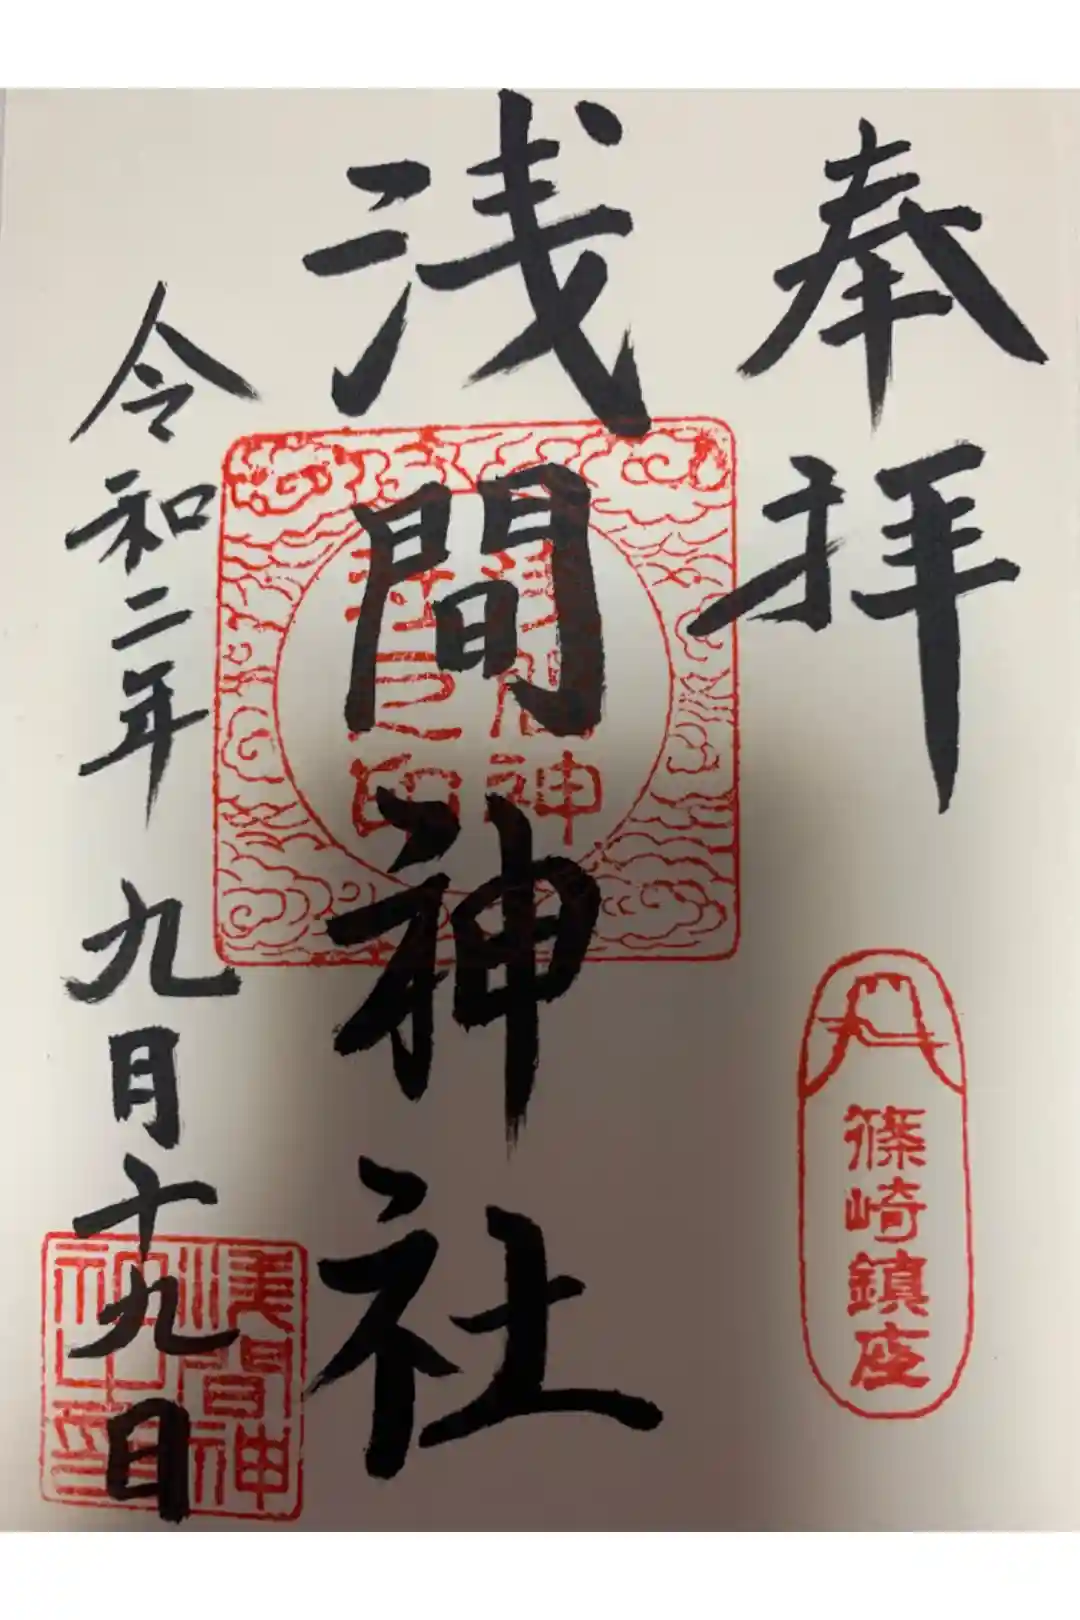 奉拝
篠崎鎮座
浅間神社
令和二年九月十九日
浅間神
社之印